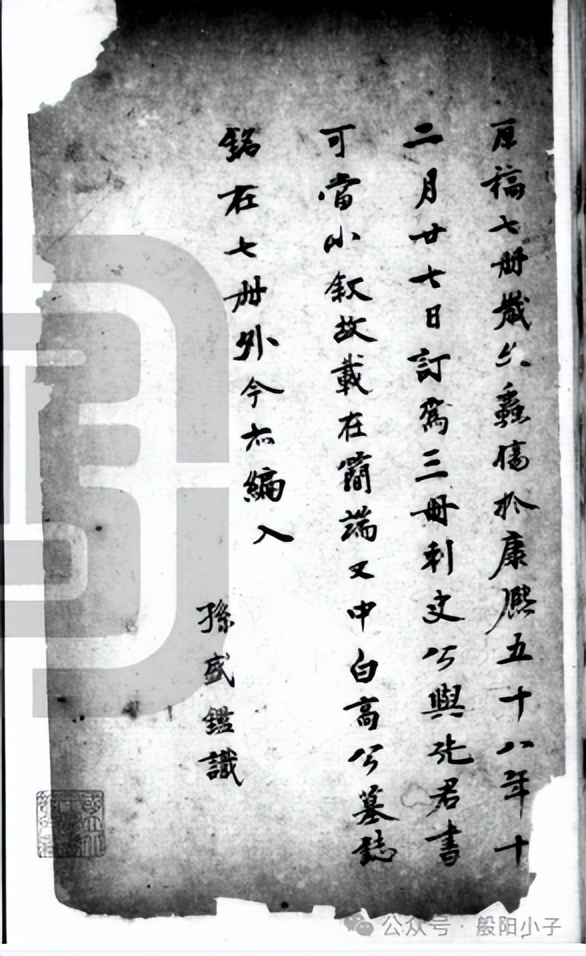 原稿七册歲久蠹傷於康熙五十八年十
二月廿七日訂爲三冊刺史公與張君書
可當小叙故載在簡端又中白高公墓誌
銘在七册外今亦編入
孫盛鑑識
公众号 · 般阳小子